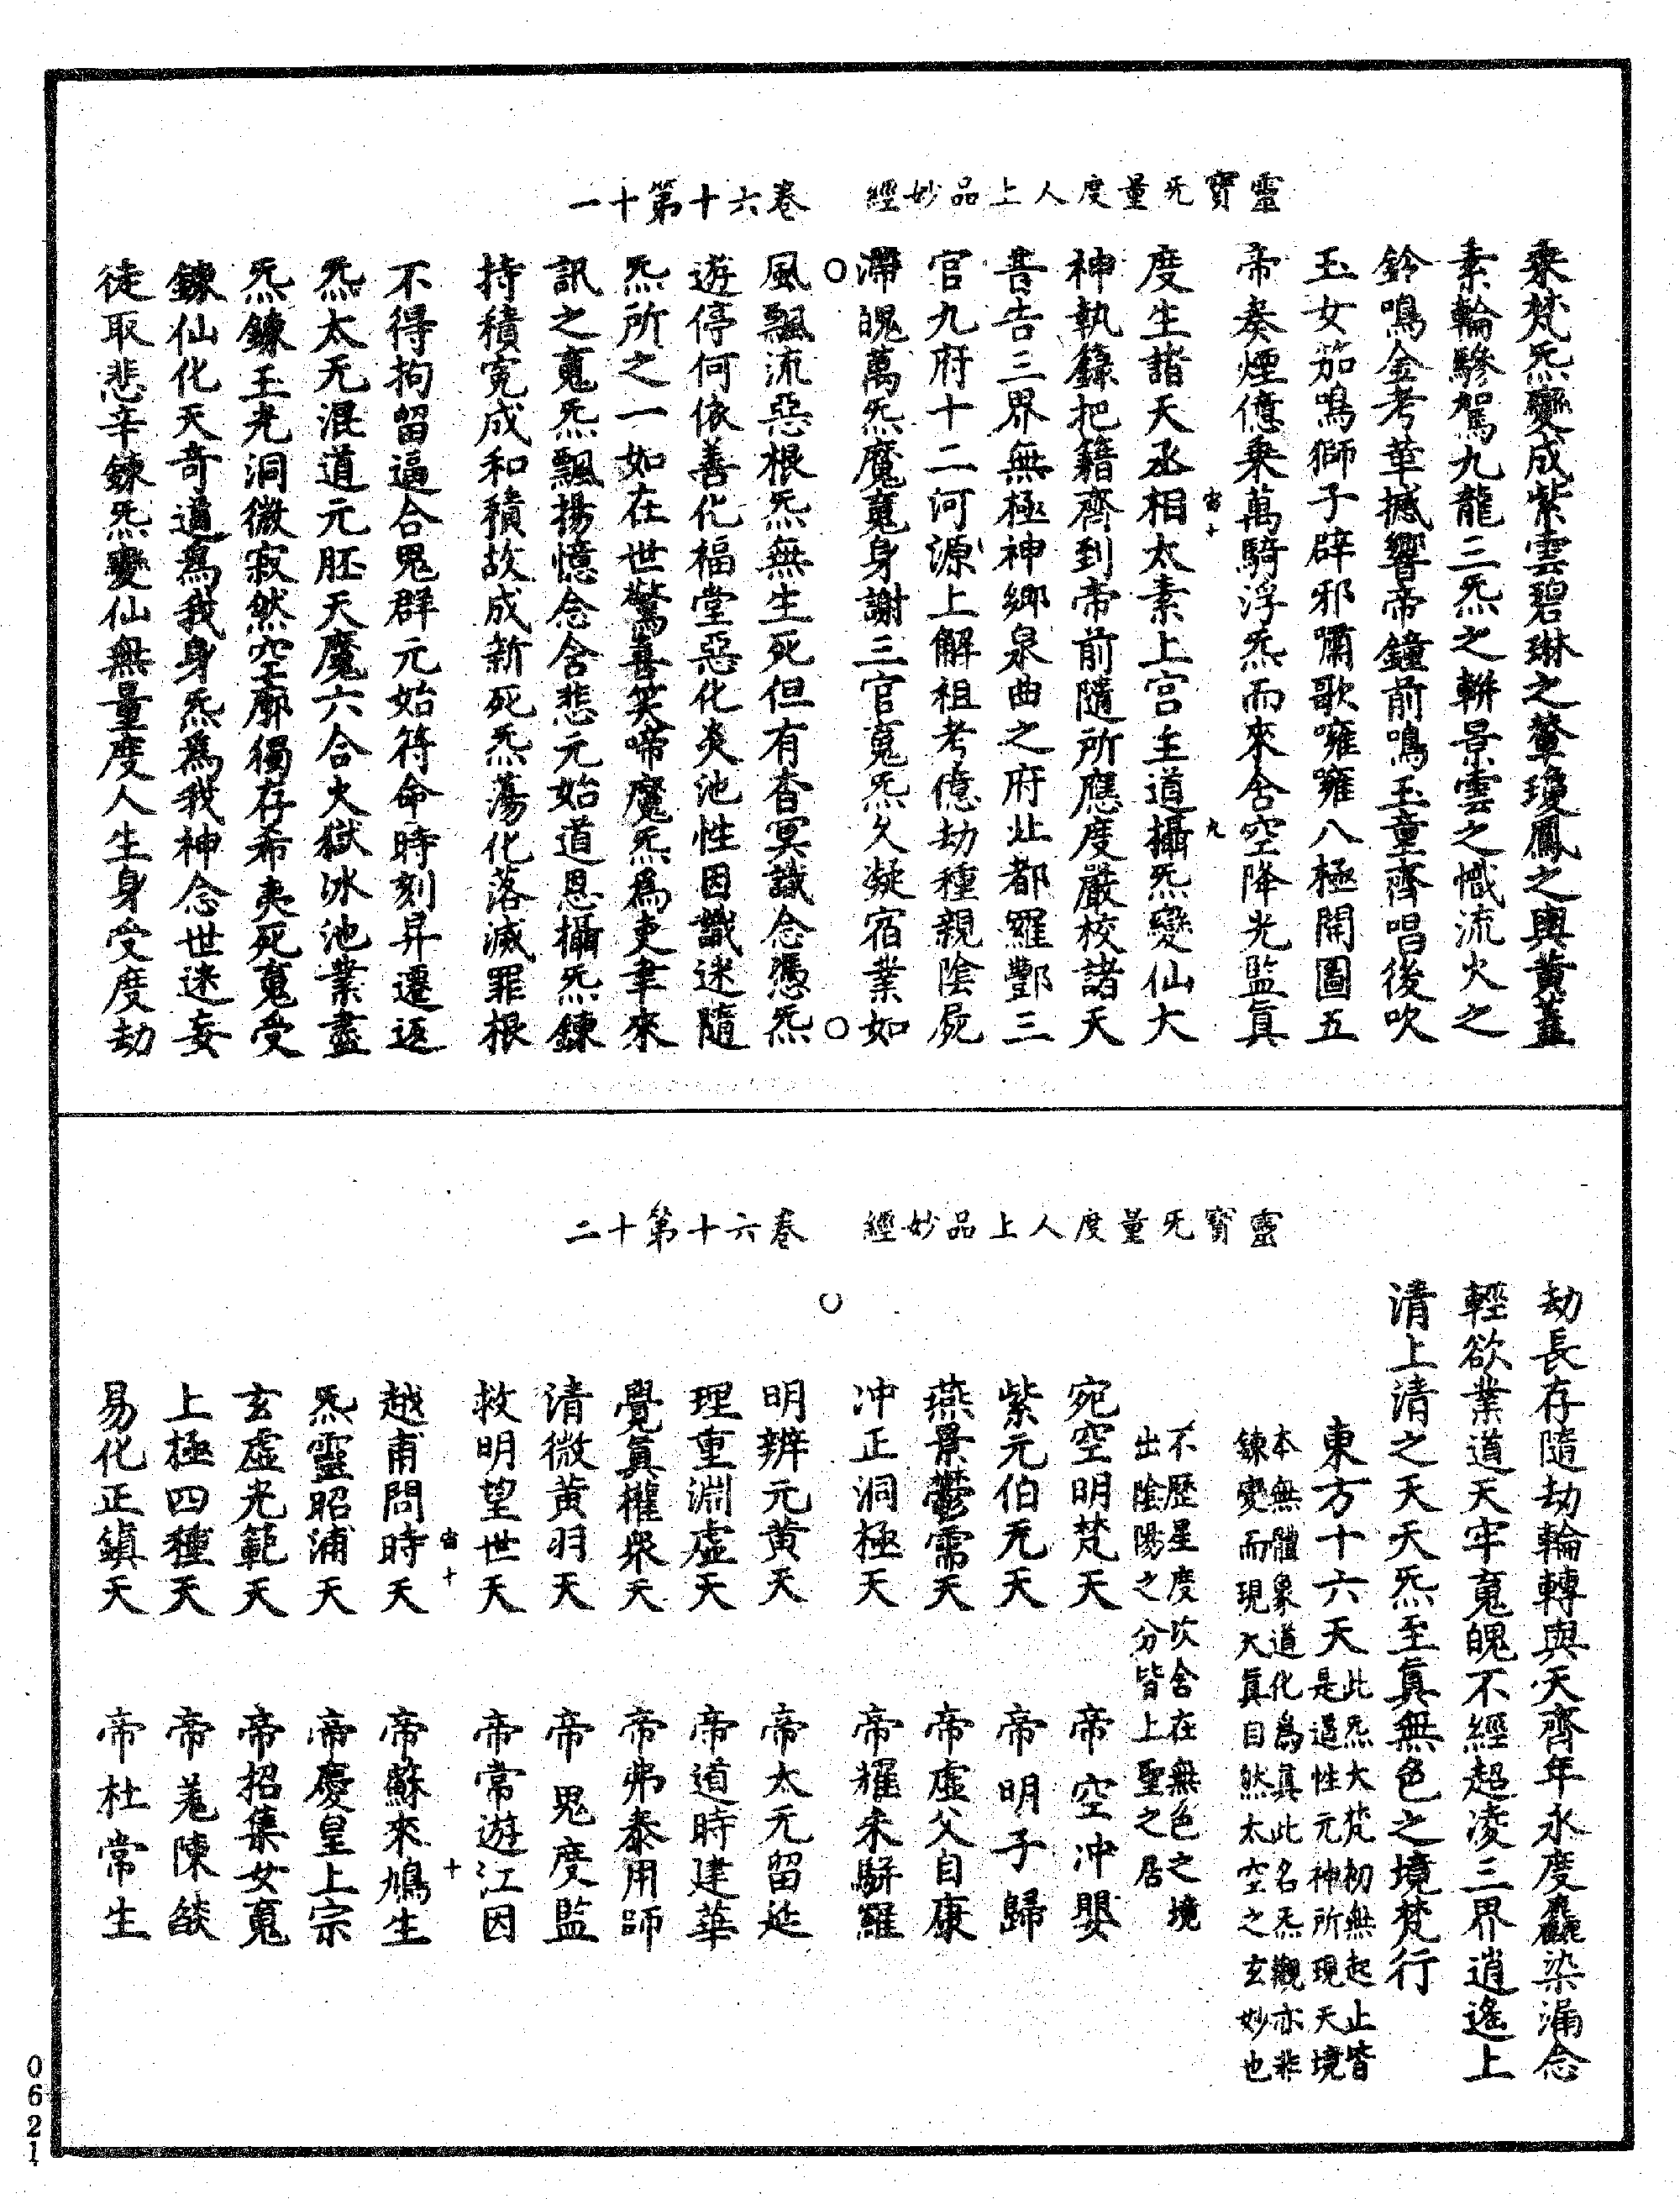 靈寶无量度人上品妙經　卷六十第十一
乘梵炁變成紫雲碧琳之輦瓊鳳之輿黃蓋
素輪驂駕九龍三炁之輧景雲之幟流火之
鈴鳴金考華撼響帝鐘前鳴玉童齊唱後吹
玉女笳鳴獅子辟邪嘯歌嗈嗈八極開圖五
帝奏煙億乘萬騎浮炁而來含空降光監眞
宙十　九
度生諸天丞相太素上宮主道攝炁變仙大
神執籙把籍齊到帝前隨所應度嚴校諸天
普告三界無極神鄉泉曲之府北都羅酆三
官九府十二河源上解祖考億劫種親陰屍
滯魄萬炁魔䰟身謝三官䰟炁久凝宿業如
風飄流惡根炁無生死但有杳冥識念憑炁
遊停何依善化福堂惡化炎池性因識迷隨
炁所之一如在世驚喜笑啼魔炁爲吏聿來
訊之䰟炁飄揚憶念含悲元始道恩攝炁鍊
持積寃成和積故成新死炁蕩化落滅罪根
不得拘留逼合鬼群元始符命時刻昇遷返
炁太无混道元胚天魔六合火獄冰池業盡
炁鍊玉光洞微寂然空廓獨存希夷死䰟受
鍊仙化天奇道爲我身炁爲我神念世迷妄
徒取悲辛鍊炁變仙無量度人生身受度劫
靈寶无量度人上品妙經　卷六十第十二
劫長存隨劫輪轉與天齊年永度麤染漏念
輕欲業道天牢䰟魄不經超凌三界逍遙上
清上清之天天炁至眞無色之境梵行
東方十六天此炁大梵初無起止皆
是道性元神所現天境
本無體象道化爲眞此名炁觀亦非
鍊變而現天眞自然太空之玄妙也
不歷星度次舍在無色之境
出陰陽之分皆上聖之居
宛空明梵天　帝空冲嬰
紫元伯无天　帝明子歸
燕景鬱霐天　帝虛父自康
冲正洞極天　帝耀未駢羅
明辨元黃天　帝太元留延
理重淵虛天　帝道時建華
覺眞權衆天　帝弗泰用師
清微黃羽天　帝鬼度監
救明望世天　帝常遊江因
宙十　十
越甫問時天　帝蘇來鳩生
炁靈昭浦天　帝慶皇上宗
玄虛光範天　帝招集女䰟
上極四種天　帝羌陳燄
易化正鎭天　帝杜常生
0621